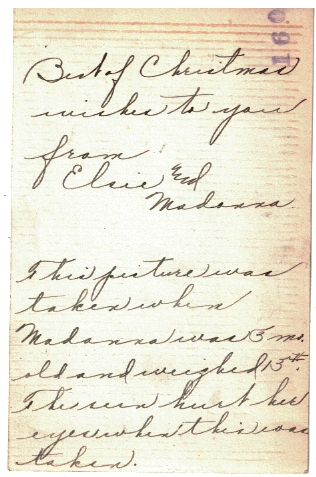 160
Best of Christmas
wishes to you
from
Elsie and
Madonna
This picture was
taken when
Madonna was 3 mo.
old and weighed 13 lb.
The sun hurt her
eyes when this was
taken.